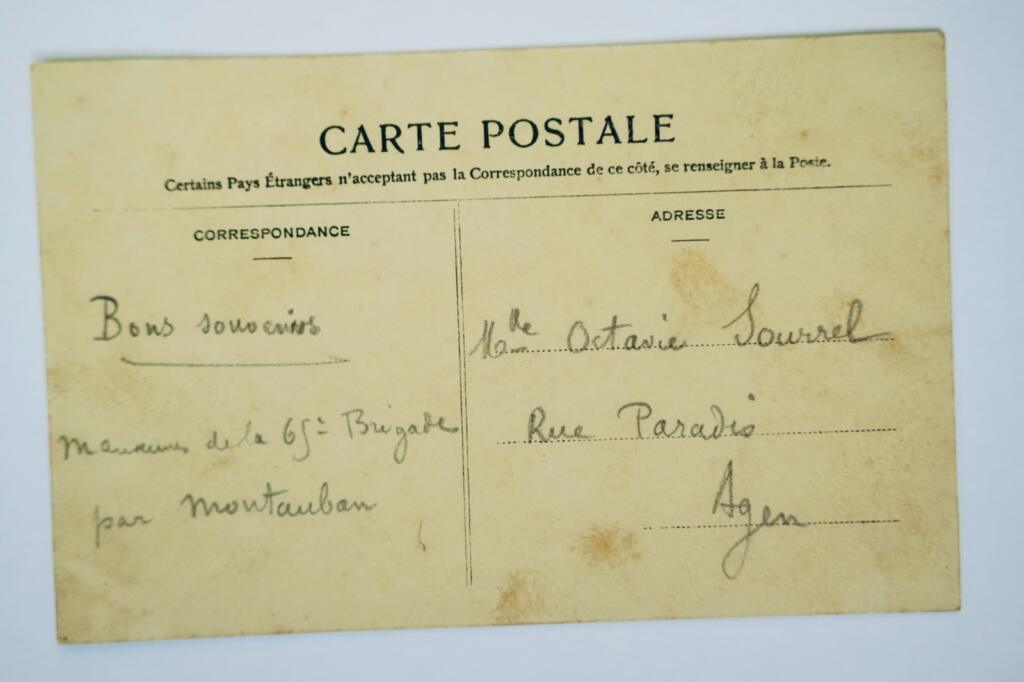 CARTE POSTALE
Certains Pays Étrangers n'acceptant pas la Correspondance de ce côté, se renseigner à la Poste.
CORRESPONDANCE
Bons souvenirs
de la 65e Brigade
par Montauban
ADRESSE
Mlle Octavie Sourrel
Rue Paradis
Agen